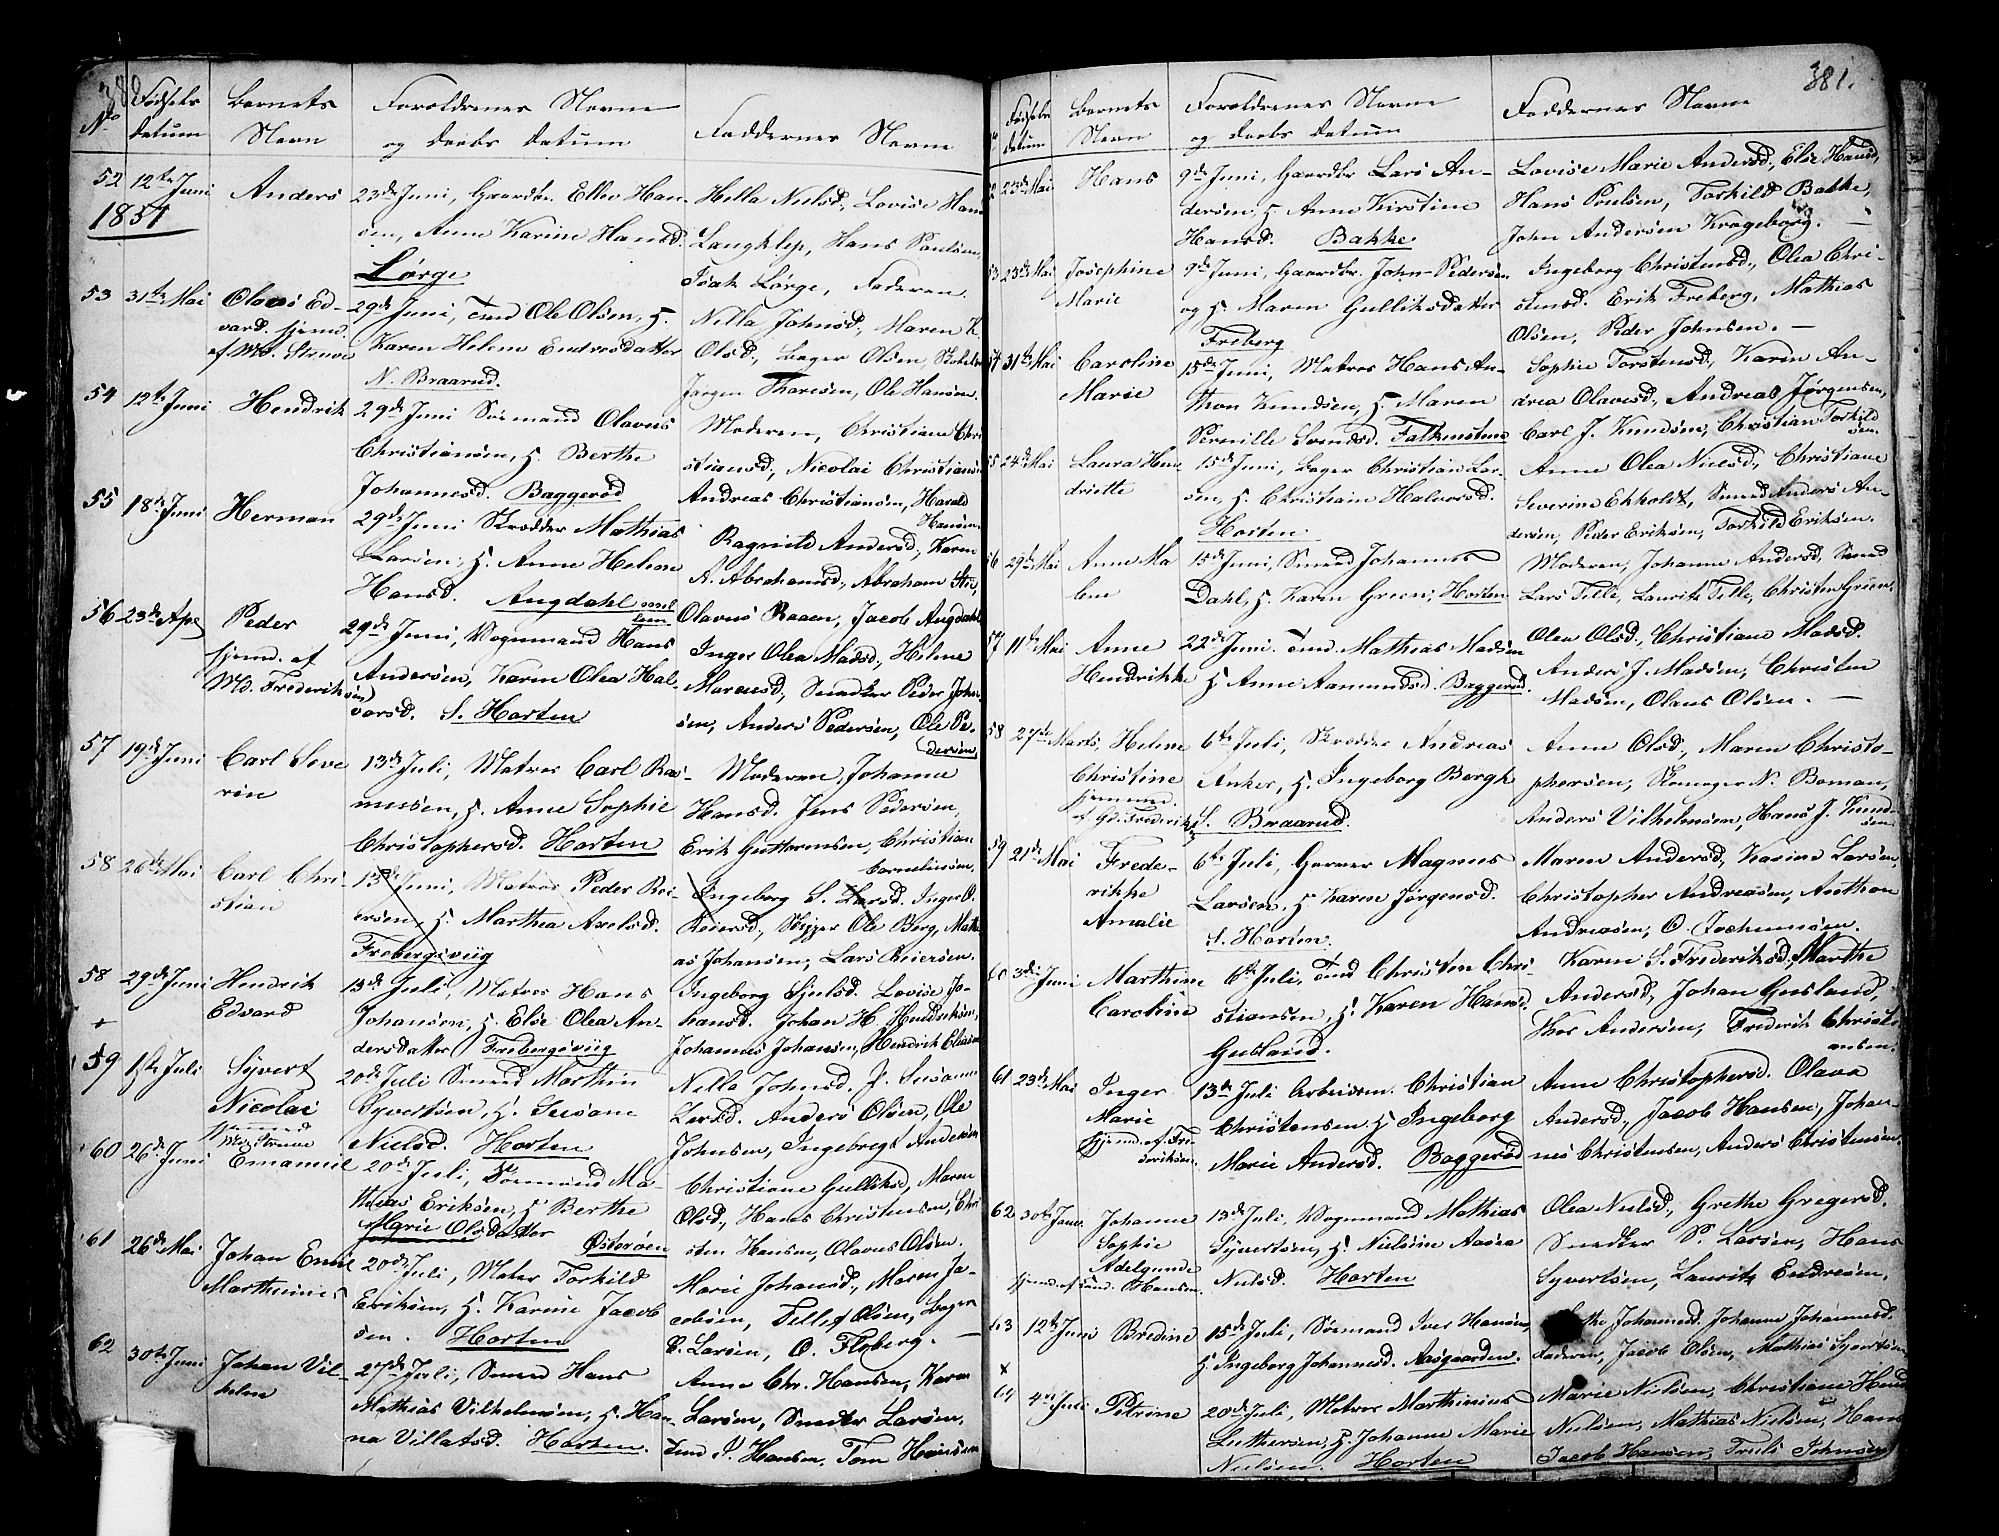 380
No
Fødsels
datum
Barnets
Navn
Forældrenes Navne
og Daabs datum
Faddernes Navne
52 12te Juni
1851
Anders
23de Juni, Gaardbr. Ellev Han-
sen, Anne Karine Hansd.
Lørge
Hella Nielsd., Lovise Hans
Langklep, Hans Paulsen,
Isak Lørge, Faderen.
53 31te Mai
Olaves Ed-
vard. hjemd.
af Md. Struve
29de Juni, Tmd Ole Olsen, H.
Karen Helene Endresdatter
N. Braarud.
Nilla Johnsd., Maren K.
Olsd., Bager Olsen,
Jørgen Thoresen, Ole Hansen.
54 12te Juni
Hendrik
29de Juni Sømand Olaves
Christiansen, H. Berthe
Johannesd. Baggerød
Moderen, Christiane Chri
stiansd., Nicolai Christians
Andreas Christiansen, Harald
Hansen.
55 18de Juni
Herman
29de Juni Skrædder Mathias
Larsen, H. Anne Helene
Hansd. Augdahl mel
lem.
Ragnild Andersd., Karen
A. Abrahamsd., Abraham
Olavus Raaen, Jacob Augdahl
56 23de Apr
Peder
hjemd. af
Md. Frederiksen
29de Juni, Vognmand Hans
Andersen, Karen Olea Hal-
vorsd. S. Horten
Inger Olea Madsd., Helene
Marcusd., Snedker Peder John
sen, Anders Pedersen, Ole Pe-
dersen.
57 19de Juni
Carl Seve
rin
13de Juli, Matros Carl Ras-
mussen, H. Anne Sophie
Christophersd. Horten
Moderen, Johanne
Hansd. Jens Pedersen,
Erik Guttormsen, Christian
Corneliusen.
58 26de Mai
Carl Chri-
stian
13de Juni, Matros Peder Rei-
ersen, H. Marthea Axelsd.
Frebergsviig
Ingeborg S. Larsd. Inger O.
Reiersd., Skipper Ole Berg, Mathi
as Johansen, Lars Reiersen.
58 29de Juni
+
Hendrik
Edvard
13de Juli, Matros Hans
Johansen, H. Else Olea An-
dersdatter Frebergsviig
Ingeborg Sjulsd. Lovise Jo-
hansd. Johan H. Hendriksen,
Johannes Johansen, Hendrik Eliasen
59 1ste Juli
Syvert
Nicolai
hjemmed
Md. Struve
20de Juli Smed Marthin
Syvertsen, H. Susane
Nielsd. Horten
Nella Johnsd. P. Susanne
Larsd. Anders Olsen, Ole
Johnsen, Ingebregt Andersen
60 26de Juni
Emanuel
20de Juli, Sømand Ma-
thias Eriksen, H. Berthe
Marie Olsdatter Østerøen
Christiane Gulliksd., Maren
Olsd., Hans Christensen, Chri
sten Hansen, Olavus Olsen.
61 26de Mai
Johan Emil
Marthinus
20de Juli, Mater Torkild
Eriksen, H. Karine Jacob
sen. Horten
Marie Johansd., Maren Ja-
cobsen, Tellef Olsen, Bager
B. Larsen, O. Floberg. —
62 30te Juni
Johan Vil-
helm
27de Juli, Smed Hans
Mathias Vilhelmsen, H. Han-
na Villatsd. Horten.
Anne Chr. Hansen, Karen
Larsen, Snedker Larsen,
Tmd P. Hansen, Tom Hansen
381.
Fødsels
datum
Barnets
Navn
Forældrenes Navne
og Daabs datum
Faddernes Navne
2 23de Mai
Hans
9de Juni, Gaardbr Lars An-
dersen, H. Anne Kirstine
Hansd. Bakke
Lovise Marie Andersd., Else Hansd,
Hans Poulsen, Torkild Bakke,
John Andersen Krageberg. —
53 23de Mai
Josephine
Marie
9de Juni, Gaardbr. John Pedersen
og H. Maren Gulliksdatter
Freberg
Ingeborg Christensd., Olea Chri-
stensd. Erik Freberg, Mathias
Olsen, Peder Johnsen. —
54 31te Mai
Caroline
Marie
15de Juni, Matros Hans An-
thon Knudsen, H. Maren
Pernille Svendsd. Falkensteen
Sophie Torstensd., Karen An-
drea Olavesd., Andreas Jørgensen,
Carl J. Knudsen, Christian Torkild
sen.
55 24de Mai
Laura Hen
driette
15de Juni, Bager Christian Lar-
sen, H. Christiane Halvorsd.
Horten.
Anne Olea Nielsd., Christiane
Severine Ekholdt, Smed Anders An-
dersen, Peder Eriksen, Torkild Eriksen.
56 29de Mai
Anne Ma
lene
15de Juni, Smed Johannes
Dahl, H. Karen Green, Horten
Moderen, Johanne Andersd, Smed
Lars Tille, Lauritz Tille, Christen Green.
57 11te Mai
Anne
Hendrikke
22de Juni. Tmd Mathias Madsen
H Anne Aamundsd. Baggerød.
Olea Olsd., Christiane Madsd.
Anders J. Madsen, Christen
Madsen, Olaus Olsen. —
58 27de Marts,
Helene
Christine
hjemmed.
af Gd. Frederik
6te Juli, Skrædder Andreas
Anker, H. Ingeborg Bergh
S. Braarud.
Anne Olsd., Maren Christo-
phersen, Skomager N. Boman,
Anders Vilhelmsen, Hans J. Knud
sen.
59 21de Mai
Frede-
rikke
Amalie
6te Juli, Garver Magnus
Larsen, H Karen Jørgensd.
S. Horten.
Maren Andersd., Karine Larsen
Christopher Andreasen, Anthon
Andreasen, O. Jochumsen.
60 3die Juni
Marthine
Caroline
6te Juli, Tmd Christen Chri-
stiansen, H. Karen Hansd
Gusland.
Karen S. Frederiksd., Marthe
Andersd., Johan Gusland,
Thor Andersen, Frederik Christi
ansen.
61 23de Mai
Inger
Marie
hjemd. af Fre
deriksen.
13de Juli Arbeidsm. Christian
Christensen, H Ingeborg
Marie Andersd. Baggerød
Anne Christophersd. Olava
Andersd., Jacob Hansen, Johan-
nes Christensen, Anders Christensen
62 30te Juni
Johanne
Sophie
Adelgunde
hjemd af Jmd. Hansen.
13de Juli, Vognmand Mathias
Syvertsen, H. Nielsine Aasea
Nielsd. Horten
Olea Nielsd., Grethe Gregersd.
Snedker P. Larsen, Hans
Syvertsen, Lauritz Endresen.
63 12te Juni
x
Bredine
15de Juli, Sømand Iver Hansen,
H. Ingeborg Johannesd. Aasgaarden.
the Johannesd. Johanne Johannesd.
Faderen, Jacob Olsen, Mathias Syvertsen
64 4de Juli
Petrine
20de Juli, Matros Marthinius
Luthersen, H. Johanne Marie
Nielsen. Horten
Marie Nielsen, Christiane Hend
Nielsen, Mathias Nielsen, Hans
Jacob Hansen, Truls Johnsen